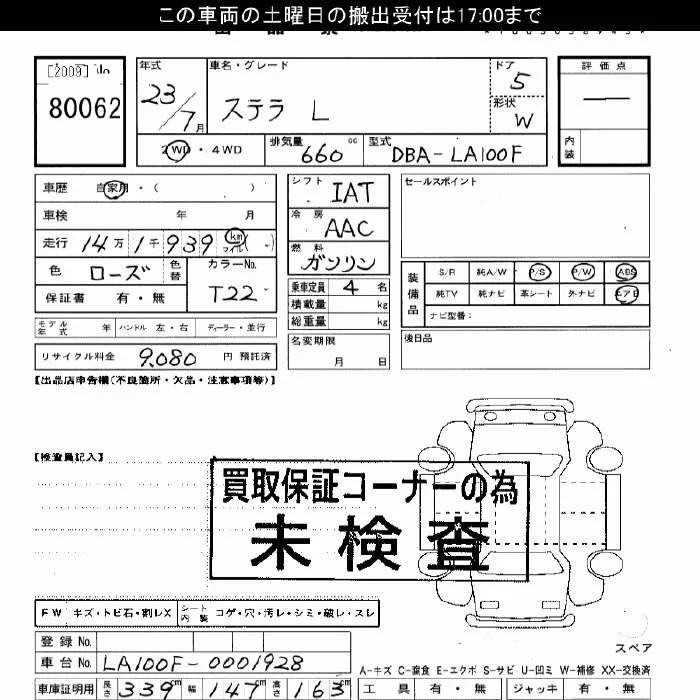 この車両の土曜日の搬出受付は17:00まで
[2009] No
80062
年式 23/7月
車名・グレード ステラ L
ドア 5
形状 W
評価点 —
内装
2WD・4WD
排気量 660 cc
型式 DBA-LA100F
車歴 自家用・( )
車検 年 月
走行 14万1千939 km マイル( )
色 ローズ 色替
カラーNo. T22
保証書 有・無
シフト IAT
冷房 AAC
燃料 ガソリン
乗車定員 4 名
積載量 kg
総重量 kg
セールスポイント
装備品
S/R 純A/W P/S P/W ABS
純TV 純ナビ 革シート 外ナビ エアB
ナビ型番:
モデル年式 年 ハンドル 左・右 ディーラー・並行
リサイクル料金 9,080 円 預託済
名変期限 月 日
後日品
【出品店申告欄(不良箇所・欠品・注意事項等)】
【検査員記入】
買取保証コーナーの為
未検査
FW キズ・トビ石・割レX シート内装 コゲ・穴・汚レ・シミ・破レ・スレ
登録No.
車台No. LA100F-0001928
スペア
車庫証明用 長さ 339cm 幅 147cm 高さ 163cm
A-キズ C-腐食 E-エクボ S-サビ U-凹ミ W-補修 XX-交換済
工具 有・無 ジャッキ 有・無